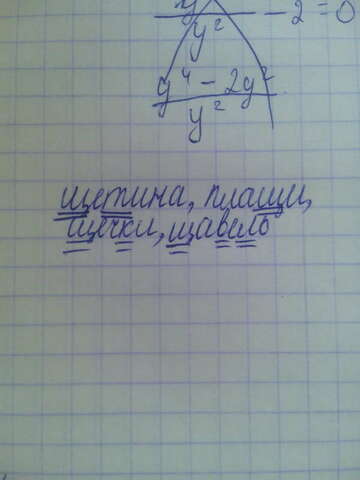 y² - 2 = 0
y⁴ - 2y²
y²
щетина, плащи,
щечки, щавель